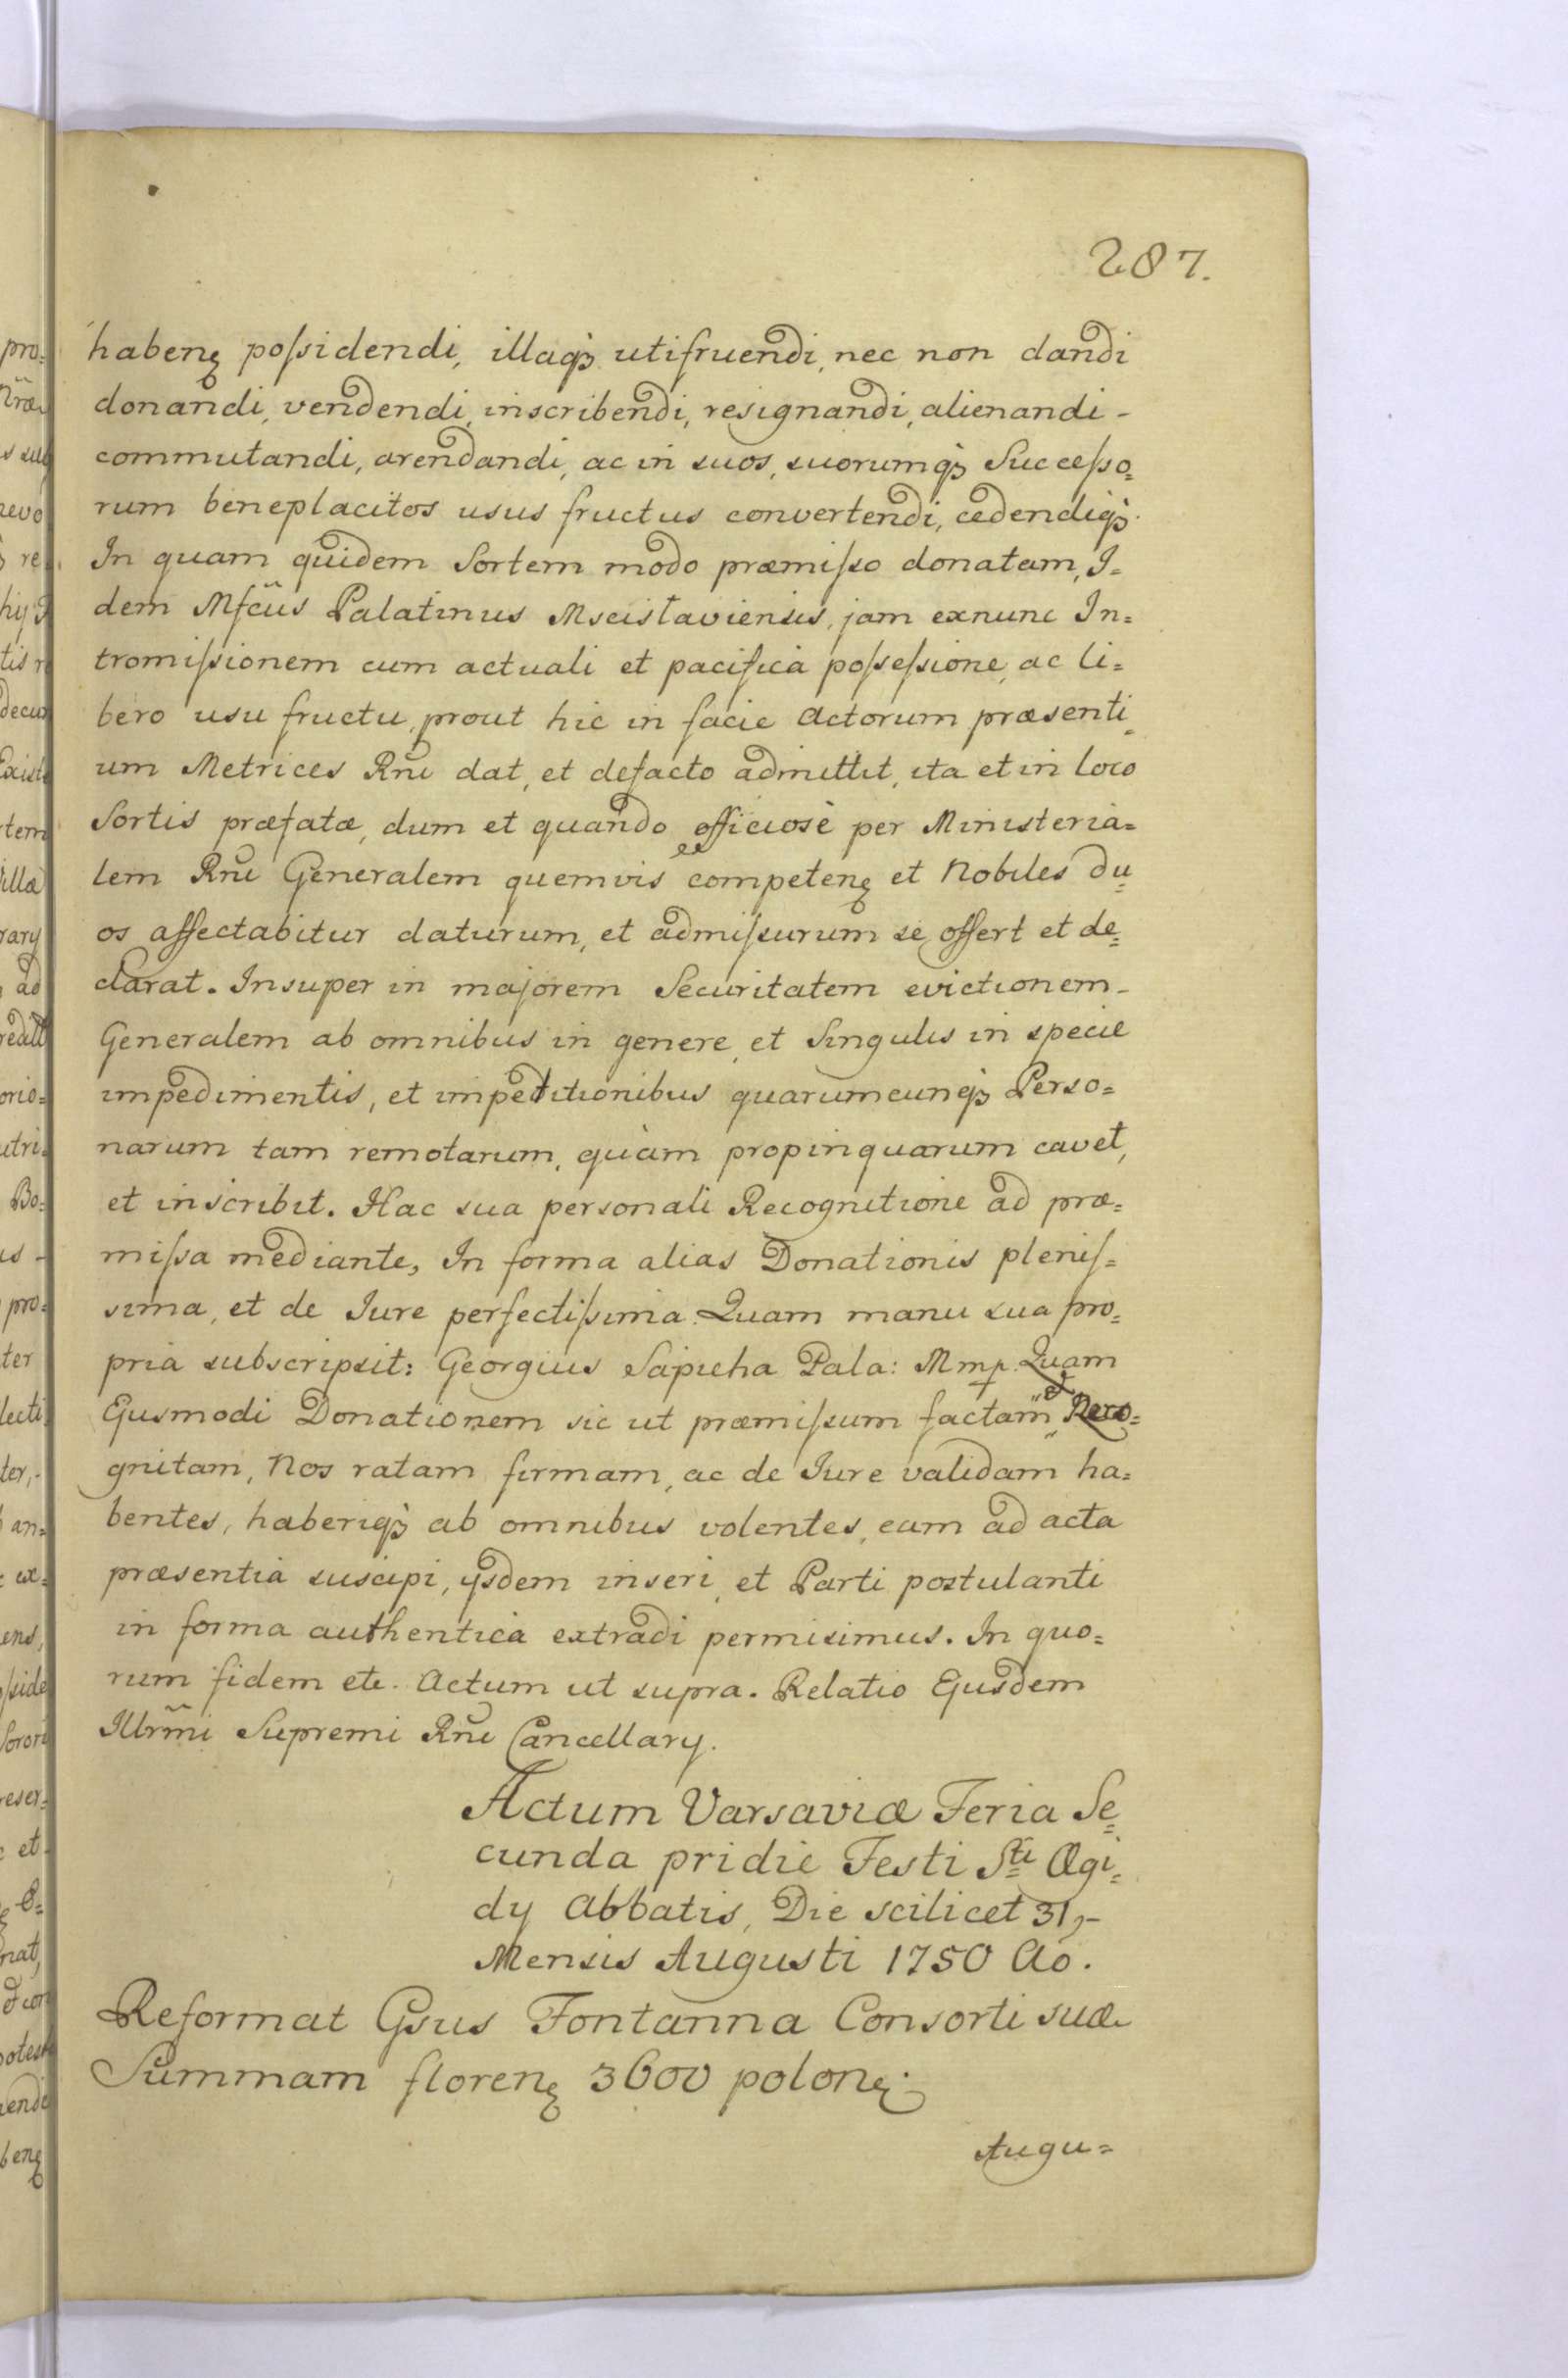 287.
habenę poſsidendi, illaqꝫ utifruendi, nec non dandi
donandi, vendendi, inscribendi, resignandi, alienandi -
commutandi, arendandi, ac in suos, suorumqꝫ Succeſso=
rum beneplacitos usus fructus convertendi, cedendiqꝫ.
In quam quidem Sortem modo præmiſso donatam, I=
dem Mfcus Palatinus Mscislaviensis, jam exnunc In=
tromiſsionem cum actuali et pacificà poſseſsione, ac li=
bero usu fructu, prout hic in facie Actorum præsenti=
um Metrices Rñi dat, et defacto admittit, ita et in loco
Sortis præfatæ, dum et quando officiosè per Ministeria=
lem Rñi Generalem quemvis competenę et Nobiles du=
os affectabitur daturum, et admiſsurum se offert et de=
clarat. Insuper in majorem Securitatem evictionem -
Generalem ab omnibus in genere, et Singulis in specie
impedimentis, et impetitionibus quarumcunqꝫ Perso=
narum tam remotarum, quàm propinquarum cavet,
et inscribit. Hac sua personali Recognitione ad præ=
miſsa mediante, In forma alias Donationis pleniſ=
sima, et de Iure perfectiſsima. Quam manu sua pro=
pria subscripsit: Georgius Sapieha Pala: M mp. Quam
Ejusmodi Donationem sic ut præmiſsum factam, et Reco=
gnitam, Nos ratam firmam, ac de Iure validam ha=
bentes, haberiqꝫ ab omnibus volentes, eam ad acta
præsentia suscipi, ijsdem inseri, et Parti postulanti
in forma authenticà extradi permisimus. In quo=
rum fidem etc. Actum ut supra. Relatio Ejusdem
Illrm̃i Supremi Rñi Cancellarij.
Actum Varsaviæ Feria Se=
cunda pridie Festi Sti Ægi=
dij Abbatis, Die scilicet 31, -
Mensis Augusti 1750 Ao.
Reformat Gsus Fontanna Consorti suæ
Summam florenę 3600 polonę.
Augu=